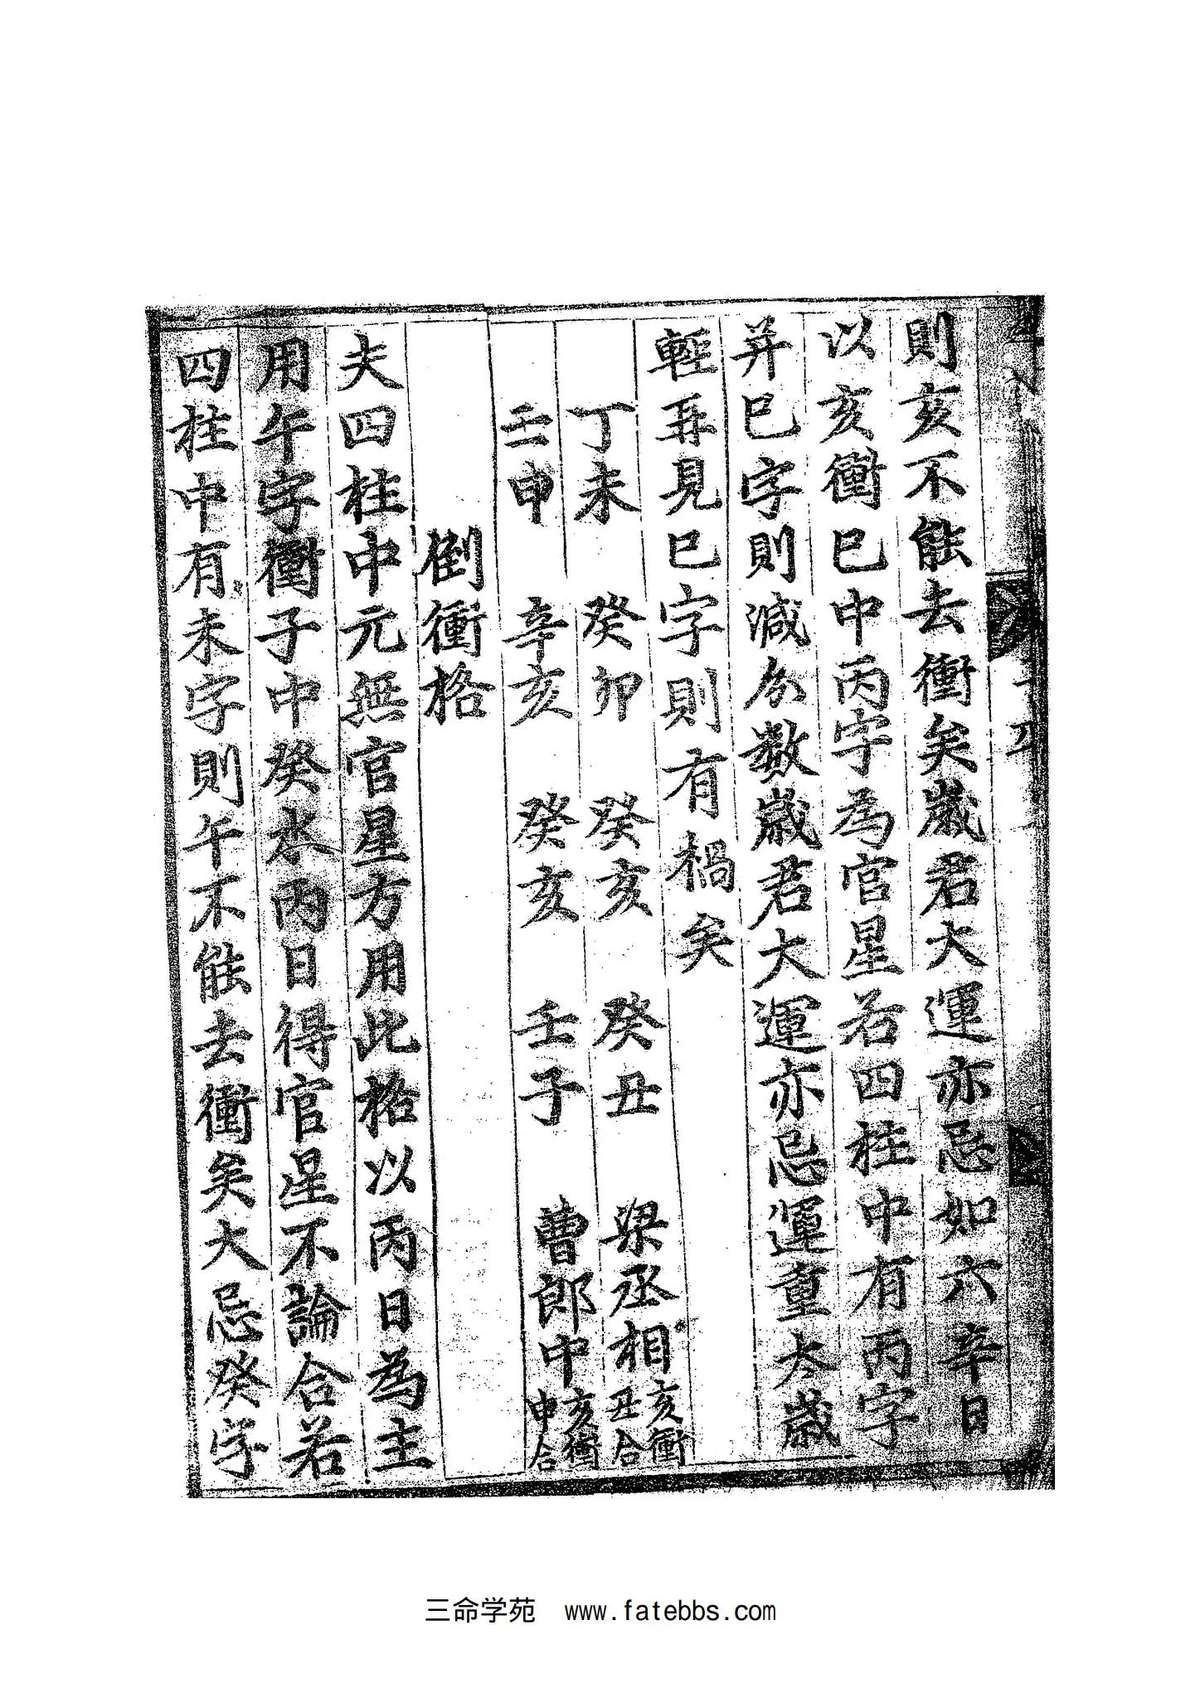 則亥不能去衝矣歲君大運亦忌如六辛日
以亥衝巳中丙字為官星若四柱中有丙字
并巳字則減分數歲君大運亦忌運重太歲
輕再見巳字則有禍矣
丁未　癸卯　癸亥　癸丑　梁丞相亥衝丑合
壬申　辛亥　癸亥　壬子　曹郎中亥衝申合
倒衝格
夫四柱中元無官星方用此格以丙日為主
用午字衝子中癸水丙日得官星不論合若
四柱中有未字則午不能去衝矣大忌癸字
三命学苑　www.fatebbs.com